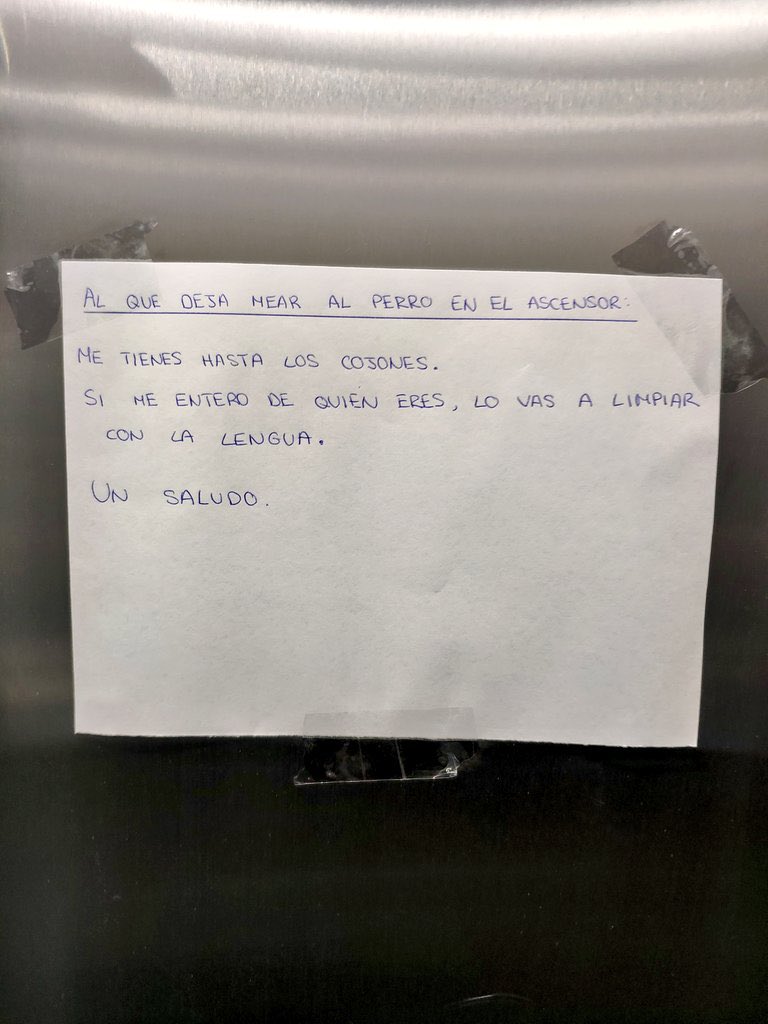 AL QUE DEJA MEAR AL PERRO EN EL ASCENSOR:
ME TIENES HASTA LOS COJONES.
SI ME ENTERO DE QUIÉN ERES, LO VAS A LIMPIAR
CON LA LENGUA.
UN SALUDO.